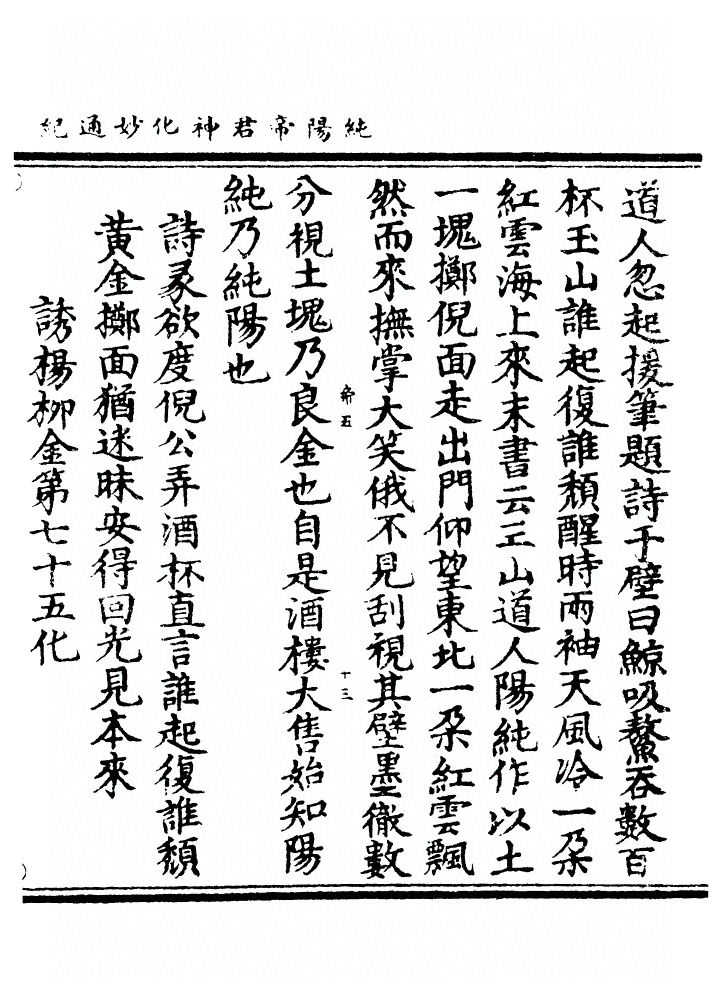 純陽帝君神化妙通紀
道人忽起援筆題詩于壁曰鯨吸鰲吞數百
杯玉山誰起復誰頹醒時兩袖天風冷一朵
紅雲海上來末書云三山道人陽純作以土
一塊擲倪面走出門仰望東北一朵紅雲飄
然而來撫掌大笑俄不見刮視其壁墨徹數
帝五
十三
分視土塊乃良金也自是酒樓大售始知陽
純乃純陽也
詩彖欲度倪公弄酒杯直言誰起復誰頹
黃金擲面猶迷昧安得回光見本來
誘楊柳金第七十五化